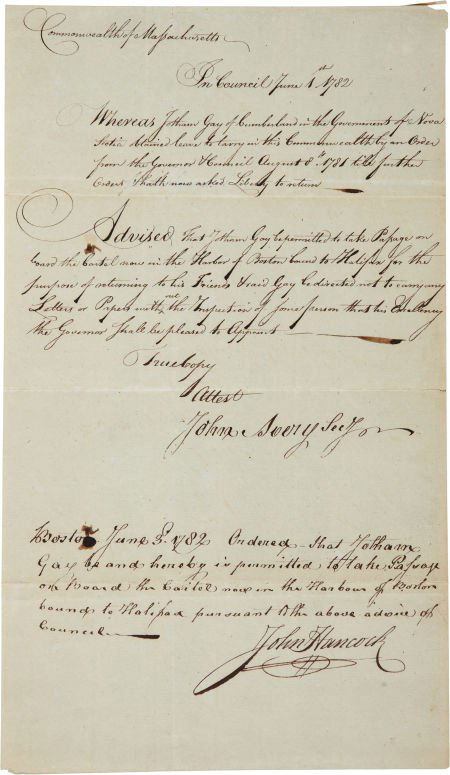 Commonwealth of Massachusetts
In Council June 1st 1782
Whereas Jotham Gay of Cumberland in the Government of Nova
Scotia obtained leave to tarry in this Commonwealth by an Order
from the Governor & Council August 8th 1781 till further
Orders & hath now asked Liberty to return
Advised that Jotham Gay be permitted to take Passage on
board the Cartel now in the Harbor of Boston bound to Halifax for the
purpose of returning to his Friends & said Gay be directed not to carry any
Letters or Papers without the Inspection of some person that his Excellency
the Governor shall be pleased to Appoint
True Copy
Attest
John Avery Secy
Boston June 3d. 1782 Ordered that Jotham
Gay be and hereby is permitted to take Passage
on Board the Cartel now in the Harbour of Boston
bound to Halifax pursuant to the above advice of
Council
John Hancock